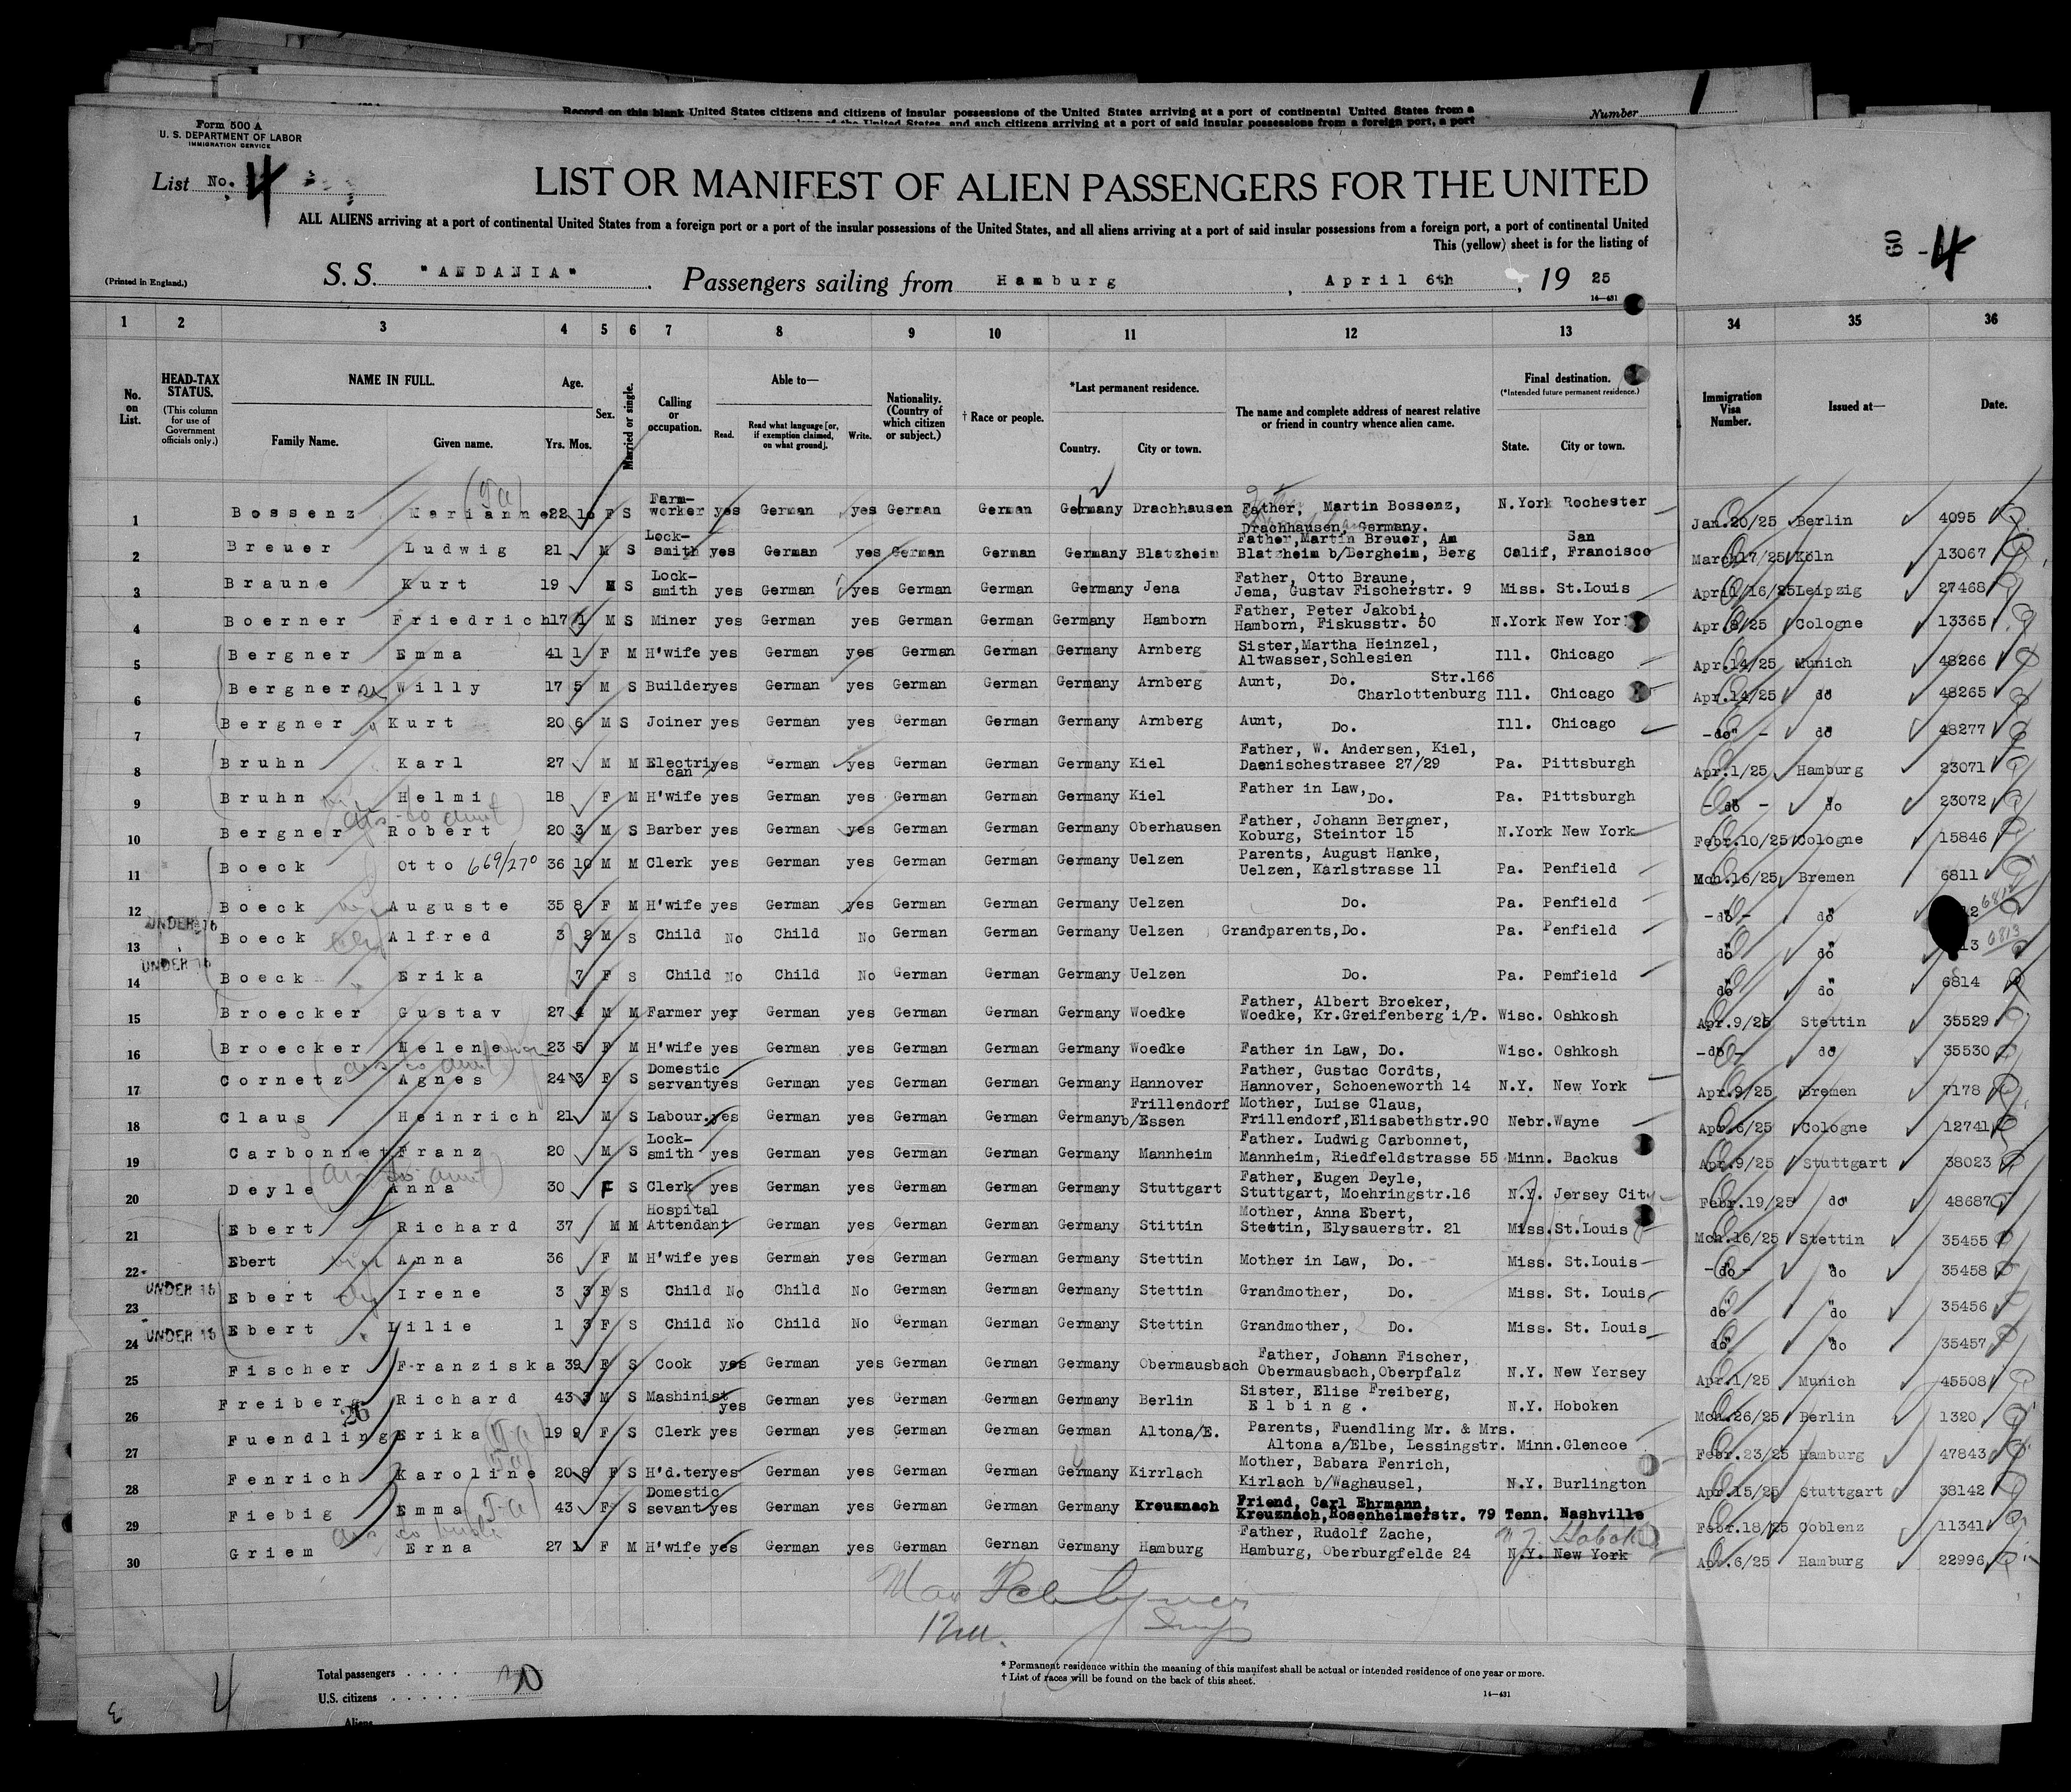 Record on this blank United States citizens and citizens of insular possessions of the United States arriving at a port of continental United States from a
of the United States, and such citizens arriving at a port of said insular possessions from a foreign port, a port
Number 1
Form 500 A
U. S. DEPARTMENT OF LABOR
IMMIGRATION SERVICE
List No. 4
LIST OR MANIFEST OF ALIEN PASSENGERS FOR THE UNITED
ALL ALIENS arriving at a port of continental United States from a foreign port or a port of the insular possessions of the United States, and all aliens arriving at a port of said insular possessions from a foreign port, a port of continental United
This (yellow) sheet is for the listing of
60 - 4
(Printed in England.)
S. S. "ANDANIA" Passengers sailing from Hamburg, April 6th, 19 25
14—431
1 2 3 4 5 6 7 8 9 10 11 12 13 34 35 36
No. on List.
HEAD-TAX STATUS. (This column for use of Government officials only.)
NAME IN FULL. Family Name. Given name.
Age. Yrs. Mos.
Sex.
Married or single.
Calling or occupation.
Able to— Read. Read what language [or, if exemption claimed, on what ground]. Write.
Nationality. (Country of which citizen or subject.)
† Race or people.
*Last permanent residence. Country. City or town.
The name and complete address of nearest relative or friend in country whence alien came.
Final destination. (*Intended future permanent residence.) State. City or town.
Immigration Visa Number.
Issued at—
Date.
1 Bossenz Marianne 22 10 F S Farm-worker yes German yes German German Germany Drachhausen Father, Martin Bossenz, Drachhausen, Germany. N.York Rochester Jan.20/25 Berlin 4095
2 Breuer Ludwig 21 M S Lock-smith yes German yes German German Germany Blatzheim Father,Martin Breuer, Am Blatzheim b/Bergheim, Berg Calif, San Francisco March17/25 Köln 13067
3 Braune Kurt 19 M S Lock-smith yes German yes German German Germany Jena Father, Otto Braune, Jema, Gustav Fischerstr. 9 Miss. St.Louis April 16/25 Leipzig 27468
4 Boerner Friedrich 17 1 M S Miner yes German yes German German Germany Hamborn Father, Peter Jakobi, Hamborn, Fiskusstr. 50 N.York New Yor Apr.8/25 Cologne 13365
5 Bergner Emma 41 1 F M H'wife yes German yes German German Germany Arnberg Sister,Martha Heinzel, Altwasser,Schlesien Ill. Chicago Apr.14/25 Munich 48266
6 Bergner Willy 17 5 M S Builder yes German yes German German Germany Arnberg Aunt, Do. Str.166 Charlottenburg Ill. Chicago Apr.14/25 do 48265
7 Bergner Kurt 20 6 M S Joiner yes German yes German German Germany Arnberg Aunt, Do. Ill. Chicago -do"- do" 48277
8 Bruhn Karl 27 M M Electrican yes German yes German German Germany Kiel Father, W. Andersen, Kiel, Daenischestrasee 27/29 Pa. Pittsburgh Apr.1/25 Hamburg 23071
9 Bruhn Helmi 18 F M H'wife yes German yes German German Germany Kiel Father in Law, Do. Pa. Pittsburgh -do- "do 23072
10 Bergner Robert 20 3 M S Barber yes German yes German German Germany Oberhausen Father, Johann Bergner, Koburg, Steintor 15 N.York New York Febr.10/25 Cologne 15846
11 Boeck Otto 669/270 36 10 M M Clerk yes German yes German German Germany Uelzen Parents, August Hanke, Uelzen, Karlstrasse 11 Pa. Penfield Mch.16/25 Bremen 6811
12 Boeck Auguste 35 8 F M H'wife yes German yes German German Germany Uelzen Do. Pa. Penfield -do- do" 6812
UNDER 16
13 Boeck Alfred 3 9 M S Child No Child No German German Germany Uelzen Grandparents,Do. Pa. Penfield do" do" 6813
UNDER 16
14 Boeck Erika 7 F S Child No Child No German German Germany Uelzen Do. Pa. Pemfield do" do" 6814
15 Broecker Gustav 27 4 M M Farmer yer German yes German German Germany Woedke Father, Albert Broeker, Woedke, Kr.Greifenberg i/P. Wisc. Oshkosh Apr.9/25 Stettin 35529
16 Broecker Helene 23 5 F M H'wife yes German yes German German Germany Woedke Father in Law, Do. Wisc. Oshkosh -do- do" 35530
17 Cornetz Agnes 24 3 F S Domestic servant yes German yes German German Germany Hannover Father, Gustac Cordts, Hannover, Schoeneworth 14 N.Y. New York Apr.9/25 Bremen 7178
18 Claus Heinrich 21 M S Labour. yes German yes German German Germany Frillendorf b/Essen Mother, Luise Claus, Frillendorf,Elisabethstr.90 Nebr.Wayne Apr.6/25 Cologne 12741
19 Carbonnet Franz 20 M S Lock-smith yes German yes German German Germany Mannheim Father. Ludwig Carbonnet, Mannheim, Riedfeldstrasse 55 Minn. Backus Apr.9/25 Stuttgart 38023
20 Deyle Anna 30 F S Clerk yes German yes German German Germany Stuttgart Father, Eugen Deyle, Stuttgart, Moehringstr.16 N.Y. Jersey City Febr.19/25 do" 48687
21 Ebert Richard 37 M M Hospital Attendant German yes German German Germany Stittin Mother, Anna Ebert, Stettin, Elysauerstr. 21 Miss.St.Louis Mch.16/25 Stettin 35455
22 Ebert Anna 36 F M H'wife yes German yes German German Germany Stettin Mother in Law, Do. Miss. St.Louis -do- "do 35458
UNDER 16
23 Ebert Irene 3 3 F S Child No Child No German German Germany Stettin Grandmother, Do. Miss. St. Louis do" "do 35456
UNDER 16
24 Ebert Lilie 1 3 F S Child No Child No German German Germany Stettin Grandmother, Do. Miss. St. Louis do" "do 35457
25 Fischer Franziska 39 F S Cook yes German yes German German Germany Obermausbach Father, Johann Fischer, Obermausbach,Oberpfalz N.Y. New Yersey Apr.1/25 Munich 45508
26 Freiberg Richard 43 3 M S Mashinist yes German yes German German Germany Berlin Sister, Elise Freiberg, Elbing. N.Y. Hoboken Mch.26/25 Berlin 1320
26
27 Fuendling Erika 19 9 F S Clerk yes German yes German German German Altona/E. Parents, Fuendling Mr. & Mrs. Altona a/Elbe, Lessingstr. Minn.Glencoe Febr.23/25 Hamburg 47843
28 Fenrich Karoline 20 8 F S H'd.ter yes German yes German German Germany Kirrlach Mother, Babara Fenrich, Kirlach b/Waghausel, N.Y. Burlington Apr.15/25 Stuttgart 38142
29 Fiebig Emma 43 F S Domestic sevant yes German yes German German Germany Kreusnach Friend, Carl Ehrmann, Kreuznach,Rosenheimerstr. 79 Tenn. Nashville Febr.18/25 Coblenz 11341
30 Griem Erna 27 1 F M H'wife yes German yes German Gernan Germany Hamburg Father, Rudolf Zache, Hamburg, Oberburgfelde 24 N.Y. New York Apr.6/25 Hamburg 22996
4
Total passengers . . . . 30
U.S. citizens . . . . . .
Aliens
* Permanent residence within the meaning of this manifest shall be actual or intended residence of one year or more.
† List of races will be found on the back of this sheet.
14—431